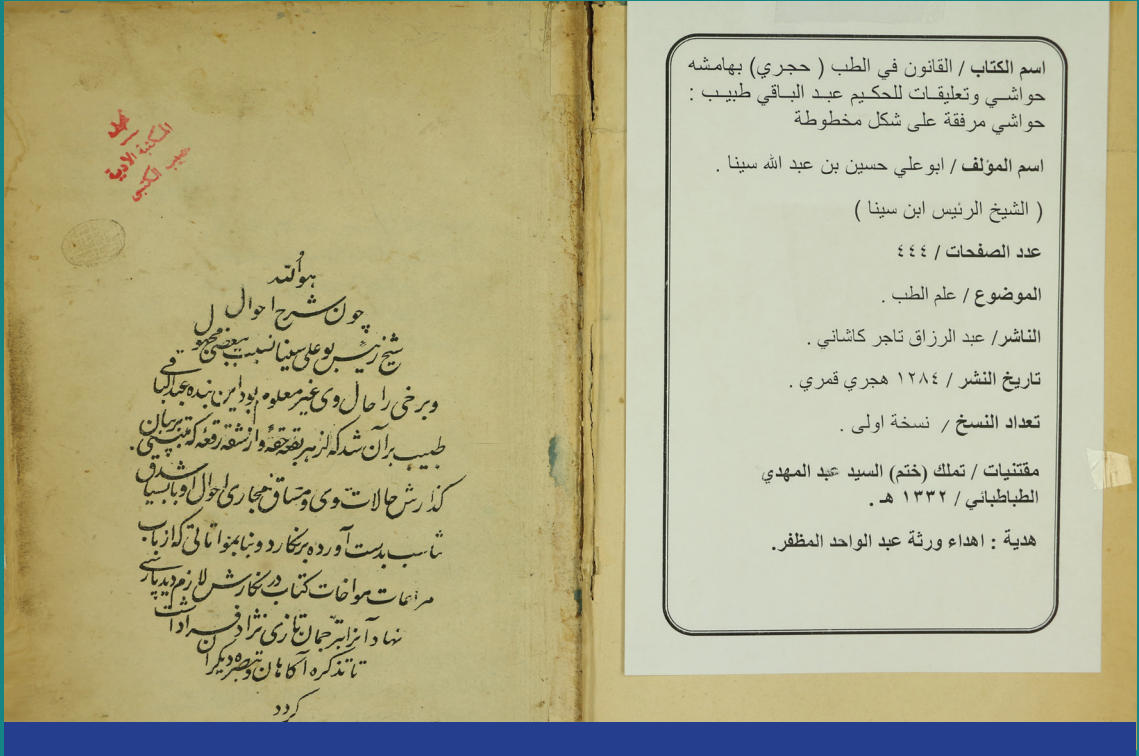 اسم الكتاب / القانون في الطب ( حجري) بهامشه
حواشي وتعليقات للحكيم عبد الباقي طبيب :
حواشي مرفقة على شكل مخطوطة
اسم المؤلف / ابو علي حسين بن عبد الله سينا .
( الشيخ الرئيس ابن سينا )
عدد الصفحات / ٤٤٤
الموضوع / علم الطب .
الناشر/ عبد الرزاق تاجر كاشاني .
تاريخ النشر / ١٢٨٤ هجري قمري .
تعداد النسخ / نسخة اولى .
مقتنيات / تملك (ختم) السيد عبد المهدي
الطباطبائي / ١٣٣٢ هـ .
هدية : اهداء ورثة عبد الواحد المظفر.
المكتبة الادبية
الكتبي
هو الله
چون شرح احوال
شیخ رئیس بو علی سینا نسبت ببعضی مجهول
و برخی را حال وی غیر معلوم بود این بنده عبدالباقی
طبیب بر آن شد که از هر بقعه حقهٔ و از شقه رقعهٔ که
گذارش حالات وی و مساق مجاری احوال او با
بدست آورده بر نگارد و بنا بمواتاتی که از باب
مراعات مواخات کتاب در نگارش لازم دید پارسی
نهاد آنرا ترجمان تازی نژاد
تا تذکره آگاهان و تبصره دیگران
گردد